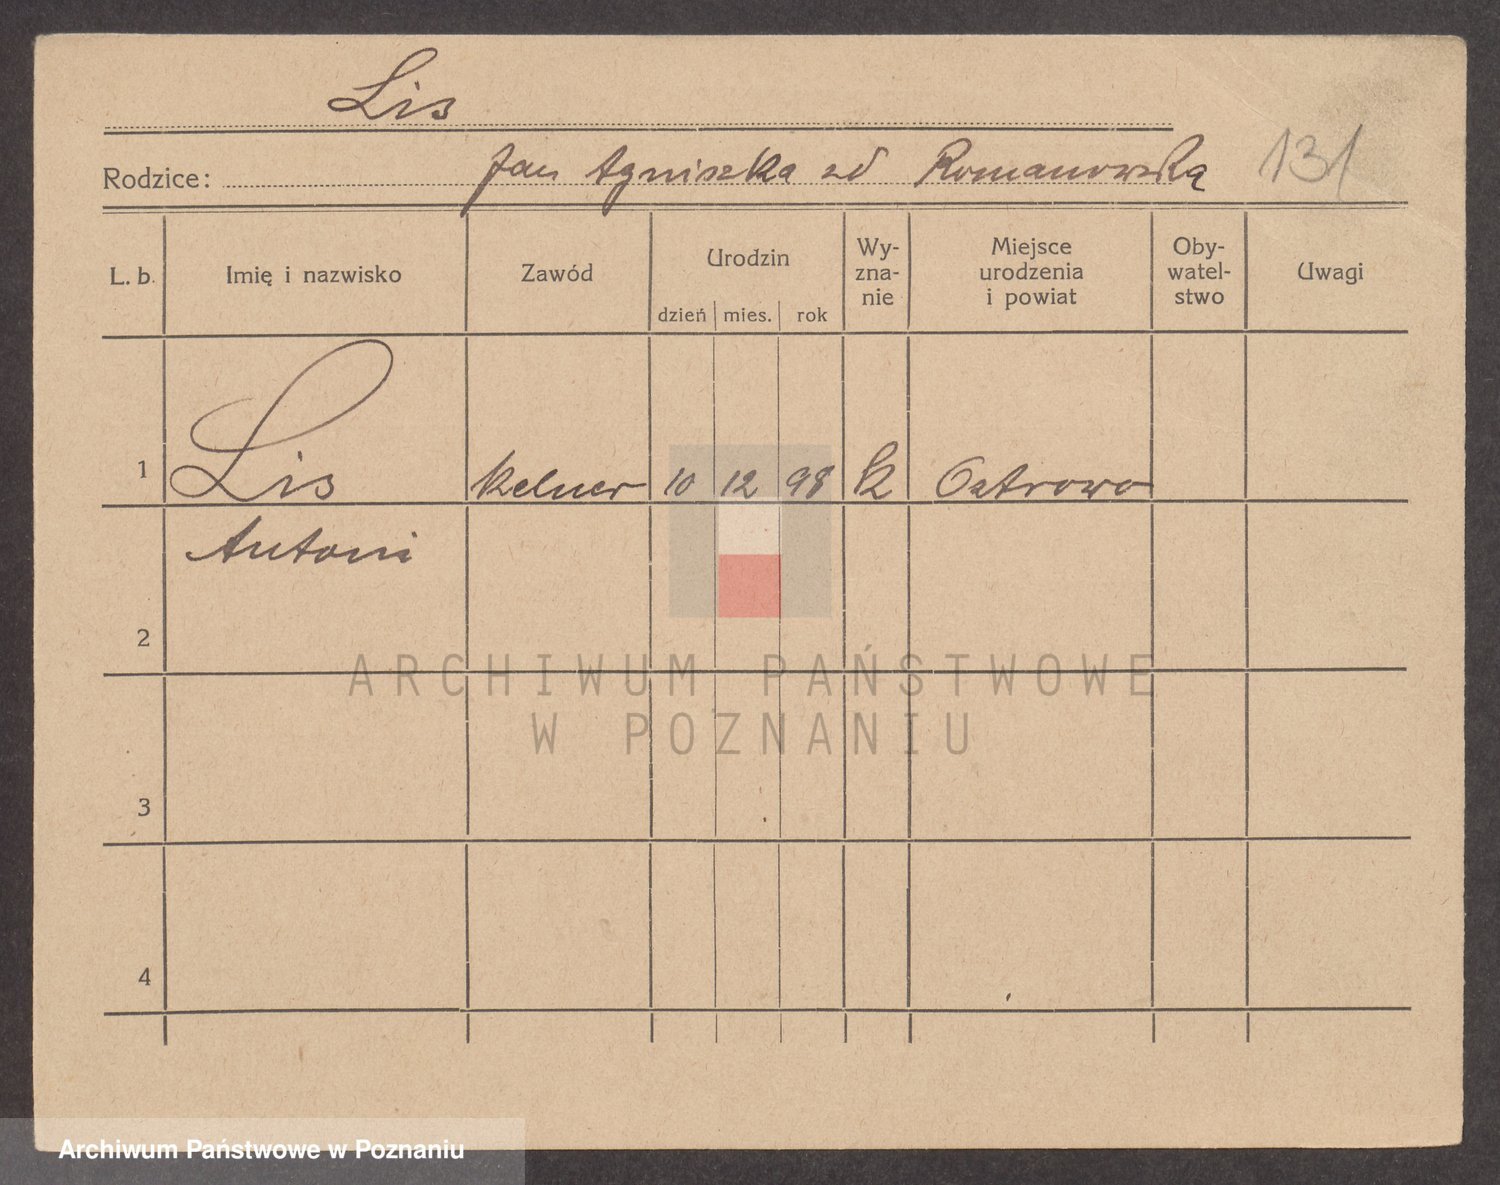 Lis
Rodzice: Jan Agniszka zd Romanowska 131
L. b. Imię i nazwisko Zawód Urodzin dzień mies. rok Wy-zna-nie Miejsce urodzenia i powiat Oby-watel-stwo Uwagi
1 Lis kelner 10 12 98 k Ostrowo
Antoni
2
3
4
ARCHIWUM PAŃSTWOWE
W POZNANIU
Archiwum Państwowe w Poznaniu